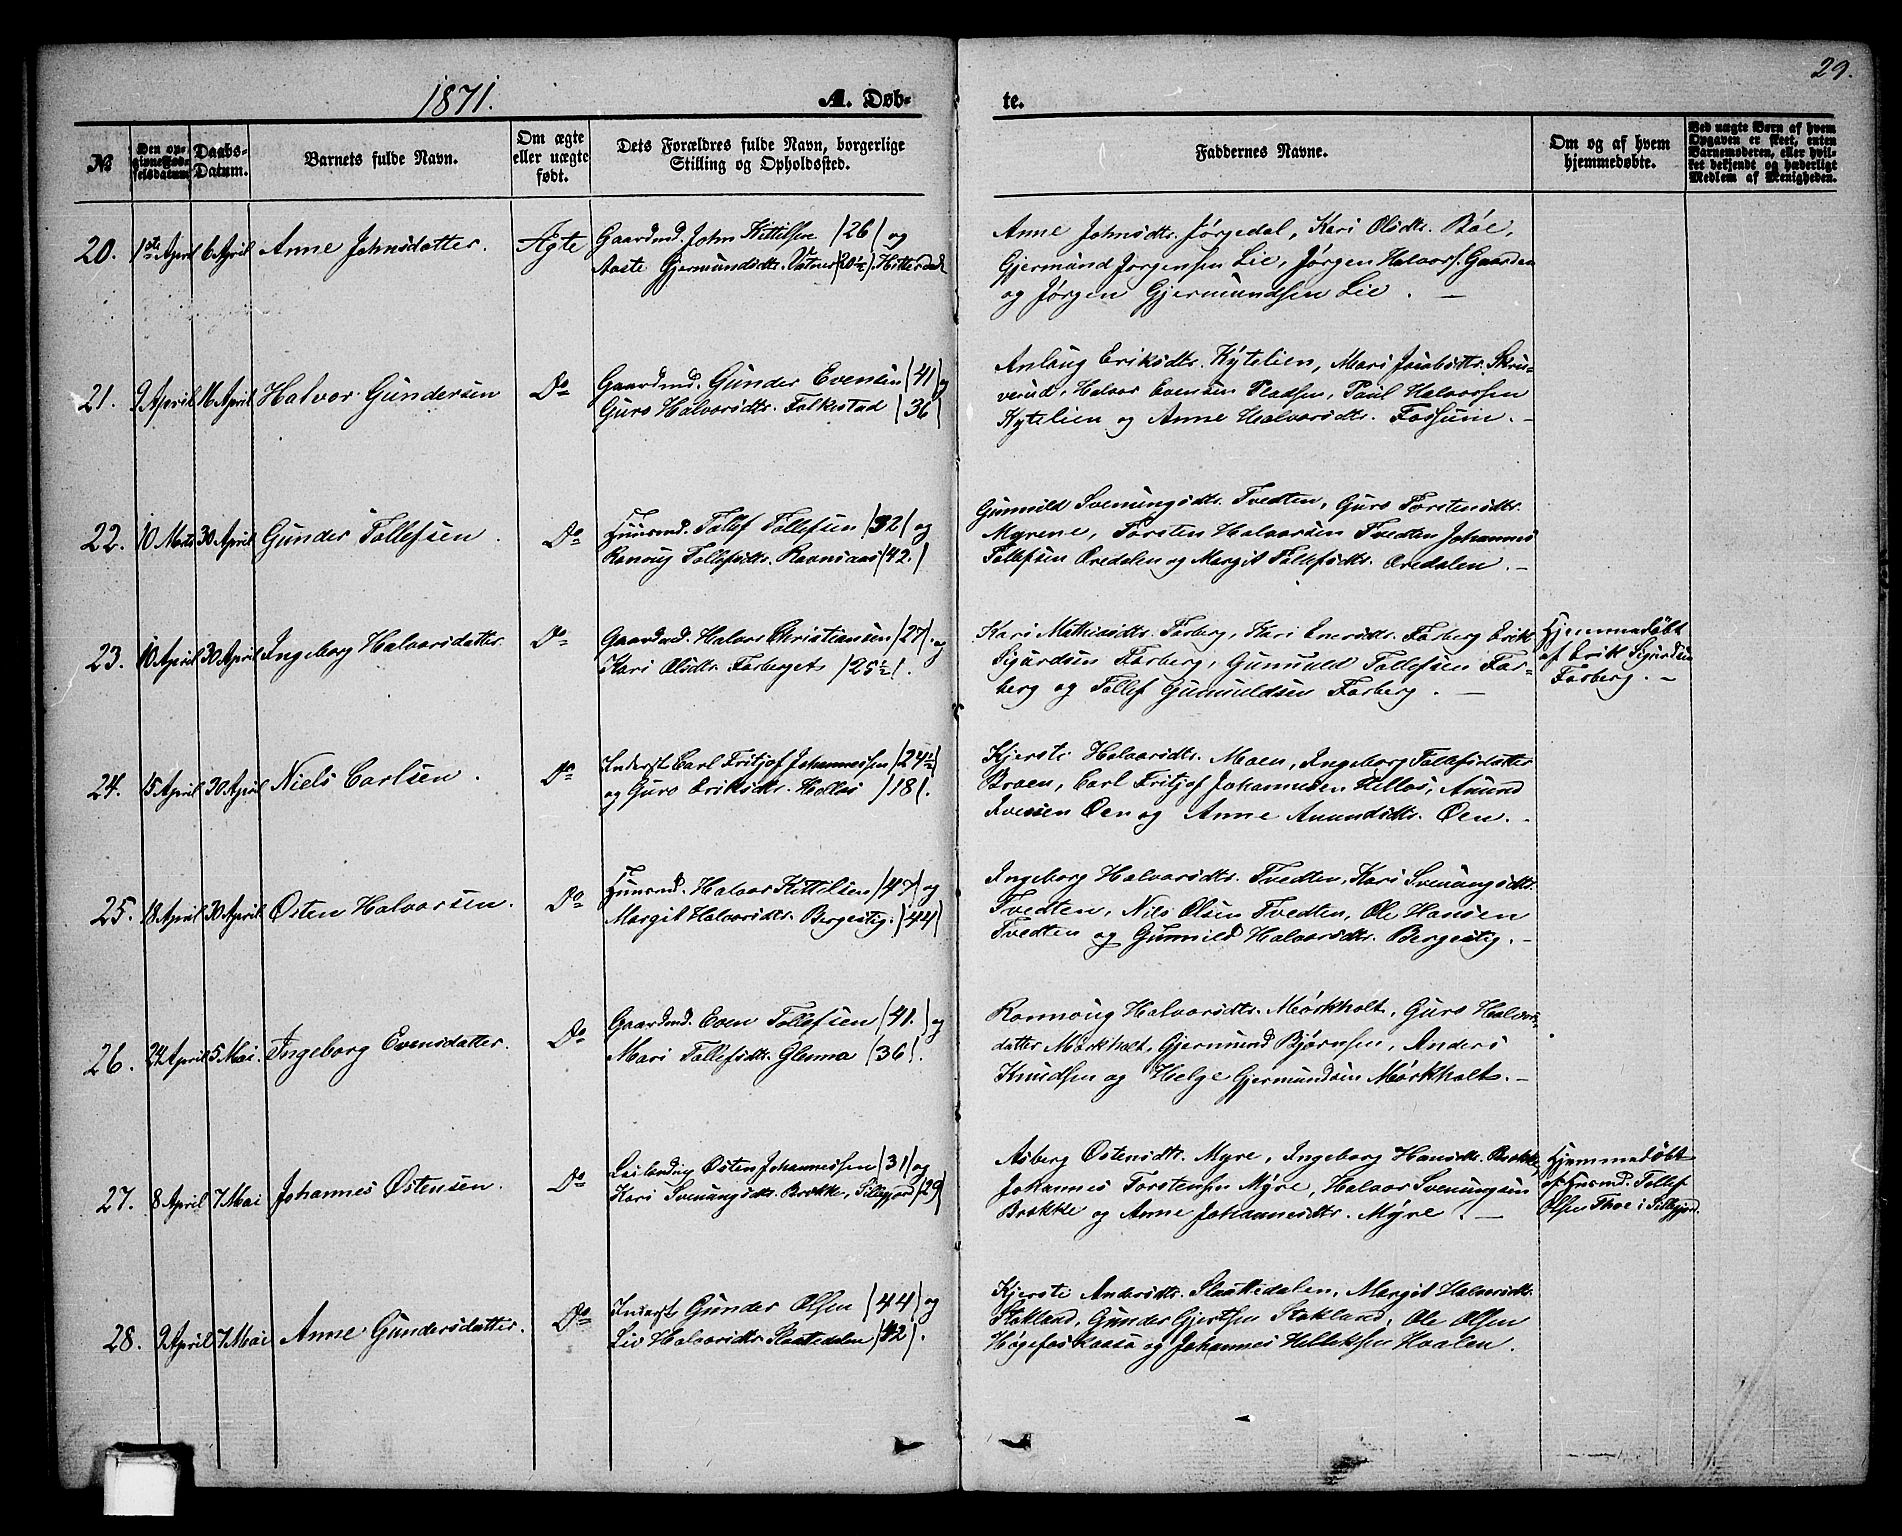 29.
1871.
A. Døb-
te.
No
Den opgivne Fødselsdatum
Daabs-Datum.
Barnets fulde Navn.
Om ægte eller uægte født.
Dets Forældres fulde Navn, borgerlige Stilling og Opholdssted.
Faddernes Navne.
Om og af hvem hjemmedøbte.
Ved uægte Børn af hvem Opgaven er skeet, enten Barnemoderen, eller hvilket bekjendt og hæderligt Medlem af Menigheden.
20. 1ste April 6 April Anne Johnsdatter. Ægte
Gaardmd. John Kittilsen /26/ og
Aaste Gjermundsdtr. Hitterdal
Anne Johnsdtr. Jørgedal, Kari Olsdtr. Bøe,
Gjermund Jørgensen Lie, Jørgen Halvors. Gaarden
og Jørgen Gjermundsen Lie. —
21. 9 April 16 April Halvor Gundersen Do
Gaardmd. Gunder Evensen /41/ og
Guro Halvorsdtr. Folkestad /36/
Anlaug Eriksdtr. Kytelien, Mari Jacobsdtr. Skru-
verud, Halvor Evensen Pladsen, Paul Halvorsen
Kytelien og Anne Halvorsdtr. Fossum. —
22. 10 Marts 30 April Gunder Tollefsen. Do
Huusmd. Tollef Tollefsen /32/ og
Ranoug Tollefsdtr. Ravnsaas /42./
Gunnild Svenungsdtr. Tvedten, Guro Torstensdtr.
Myrene, Torsten Halvorsen Tvedten, Johannes
Tollefsen Oredalen og Margit Tollefsdtr. Oredalen. —
23. 10 April 30 April Ingeborg Halvorsdatter. Do
Gaardmd. Halvor Christiansen /27/. og
Kari Olsdtr. Farberget /25½/.
Kari Mathiasdtr. Farberg, Kari Enersdtr. Farberg, Erik
Sigurdsen Farberg, Gunnuld Tollefsen Far-
berg og Tollef Gunnuldsen Farberg. —
Hjemmedøbt
af Erik Sigurdsen
Farberg. —
24. 15 April 30 April Niels Carlsen. Do
Inderst Carl Fritjof Johannessen /24½/
og Guro Eriksdtr. Hollos /18/.
Kjersti Halvorsdtr. Moen, Ingeborg Tollefsdatter
Broen, Carl Fritjof Johannesen Hellos, Amund
Iversen Øen og Anne Amundsdtr. Øen. —
25. 18 April 30 April Østen Halvorsen. Do
Huusmd. Halvor Kittilsen /47/ og
Margit Halvorsdtr. Bergestig. /44/
Ingeborg Halvorsdtr. Tvedten, Kari Svenungsdtr.
Tvedten, Nils Olsen Tvedten, Ole Hansen
Tvedten og Gunnild Halvorsdtr. Bergestig. —
26. 24 April 5 Mai. Ingeborg Evensdatter. Do
Gaardmd. Even Tollefsen /41./ og
Mari Tollefsdtr. Glenna /36/.
Ronnoug Halvorsdtr. Mørkholt, Guro Halvors-
datter Mørkholt, Gjermund Bjørnsen, Anders
Knudsen og Helge Gjermundsen Mørkholt. —
27. 8 April 7 Mai Johannes Østensen. Do
Leilending Østen Johannessen /31/ og
Kari Svenungsdtr. Brokke, Sillegjord /29/
Asberg Ostensdtr. Myre, Ingeborg Hansdtr. Brokke
Johannes Torstensen Myre, Halvor Svenungsen
Brokke og Anne Johannesdtr. Myre. —
Hjemmedøbt
af Husmd. Tollef
Olsen Thoe i Sillegjord.
28. 9 April 7 Mai Anne Gundersdatter. Do
Inderst Gunder Olsen /44/ og
Liv Halvorsdtr. Slaattedalen /42/.
Kjersti Andersdtr. Slaattedalen, Margit Halvorsdtr.
Stokland, Gunder Gjertsen Stokland, Ole Olsen
Høgefos Kaasa og Johannes Helleksen Hvalen.